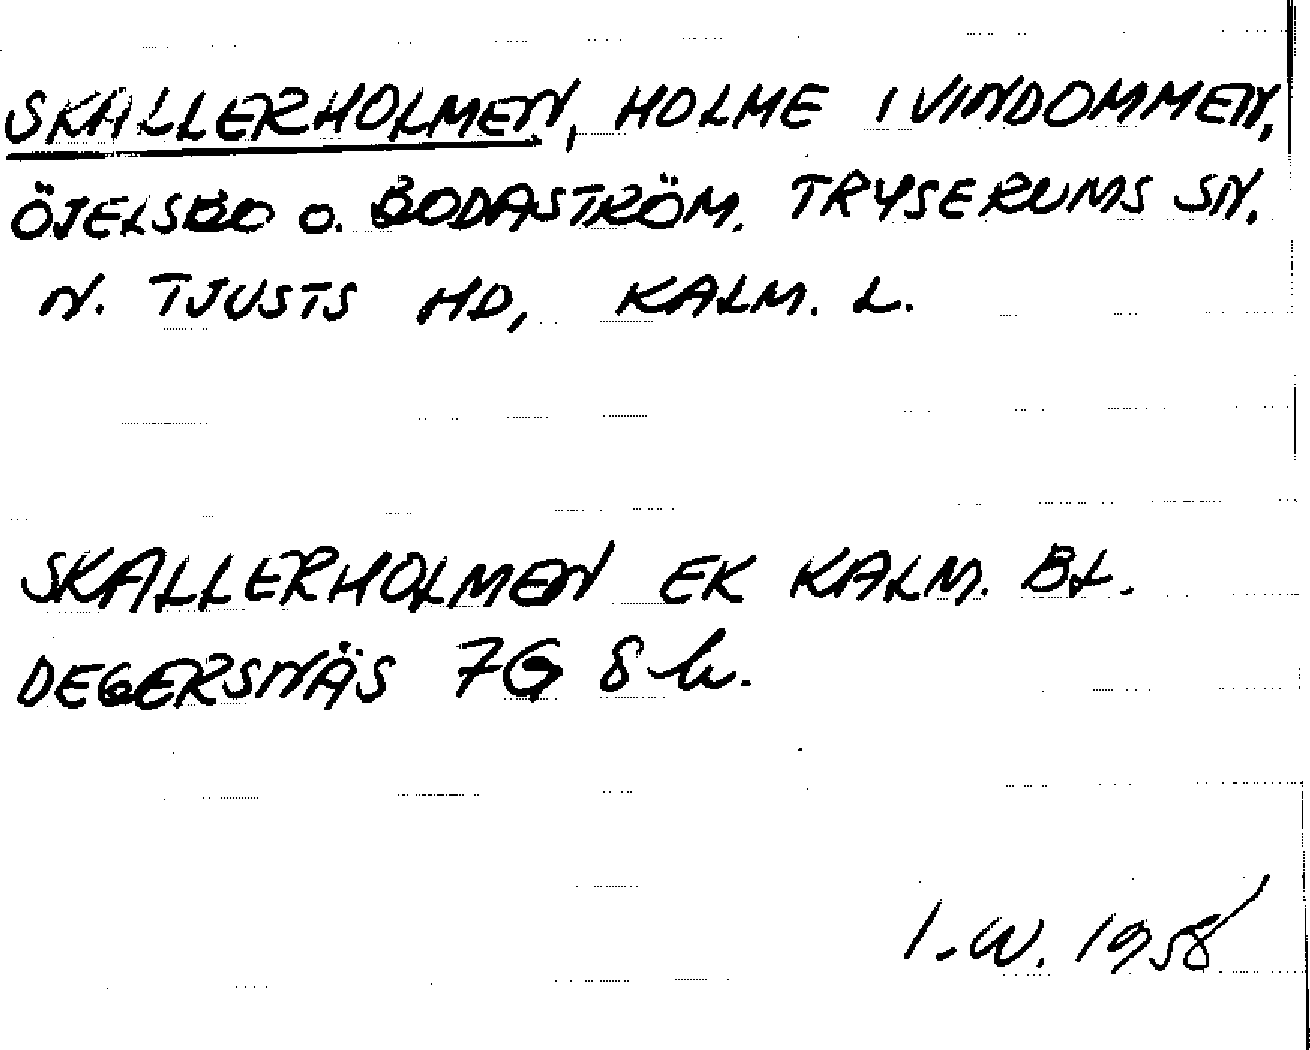 SKALLERHOLMEN, HOLME I VINDOMMEN,
ÖJELSBO O. BODASTRÖM. TRYSERUMS SN.
N. TJUSTS HD, KALM. L.
SKALLERHOLMEN EK KALM. BL.
DEGERSNÄS 7G 8 h.
I.W. 1958